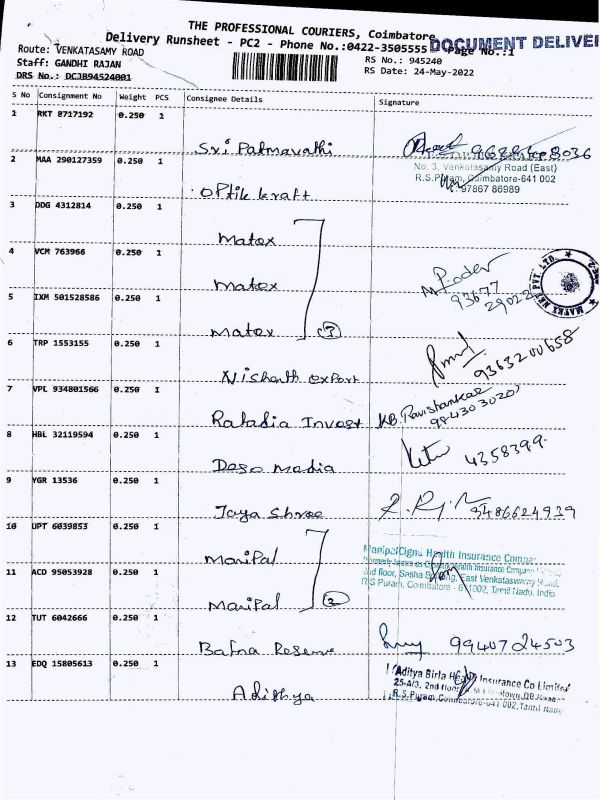 THE PROFESSIONAL COURIERS, Coimbatore
Delivery Runsheet - PC2 - Phone No.:0422-3505555 Page No.:1
DOCUMENT DELIVE
Route: VENKATASAMY ROAD
RS No.: 945240
Staff: GANDHI RAJAN
RS Date: 24-May-2022
DRS No.: DCJB94524001
S No Consignment No Weight PCS Consignee Details Signature
1 RKT 8717192 0.250 1
Sri Patmavathi
No. 3, Venkatasamy Road (East)
2 MAA 290127359 0.250 1
R.S.Puram, Coimbatore-641 002
97867 86989
Optik kraft
3 DDG 4312814 0.250 1
Matex
4 VCM 763966 0.250 1
Matex
93677
29022
5 IXM 501528586 0.250 1
Matex (3)
6 TRP 1553155 0.250 1
9363200658
Nishanth export
7 VPL 934801566 0.250 1
Ratadia Invest KB. Ravishankar
9843030201
8 HBL 32119594 0.250 1
4358399.
Deso media
9 YGR 13536 0.250 1
Jaya Shree 9486624939
10 UPT 6039853 0.250 1
Manipal
ManipalCigna Health Insurance Company
11 ACD 95053928 0.250 1
2nd floor, Sasha Building, East Venkataswamy Road,
R S Puram, Coimbatore - 641002, Tamil Nadu, India
Manipal (2)
12 TUT 6042666 0.250 1
Bafna Reserve 9940724503
13 EDQ 15805613 0.250 1
Aditya Birla Health Insurance Co Limited
25-A/3, 2nd floor
R.S.Puram, Coimbatore-641 002, Tamil Nadu
Adithya